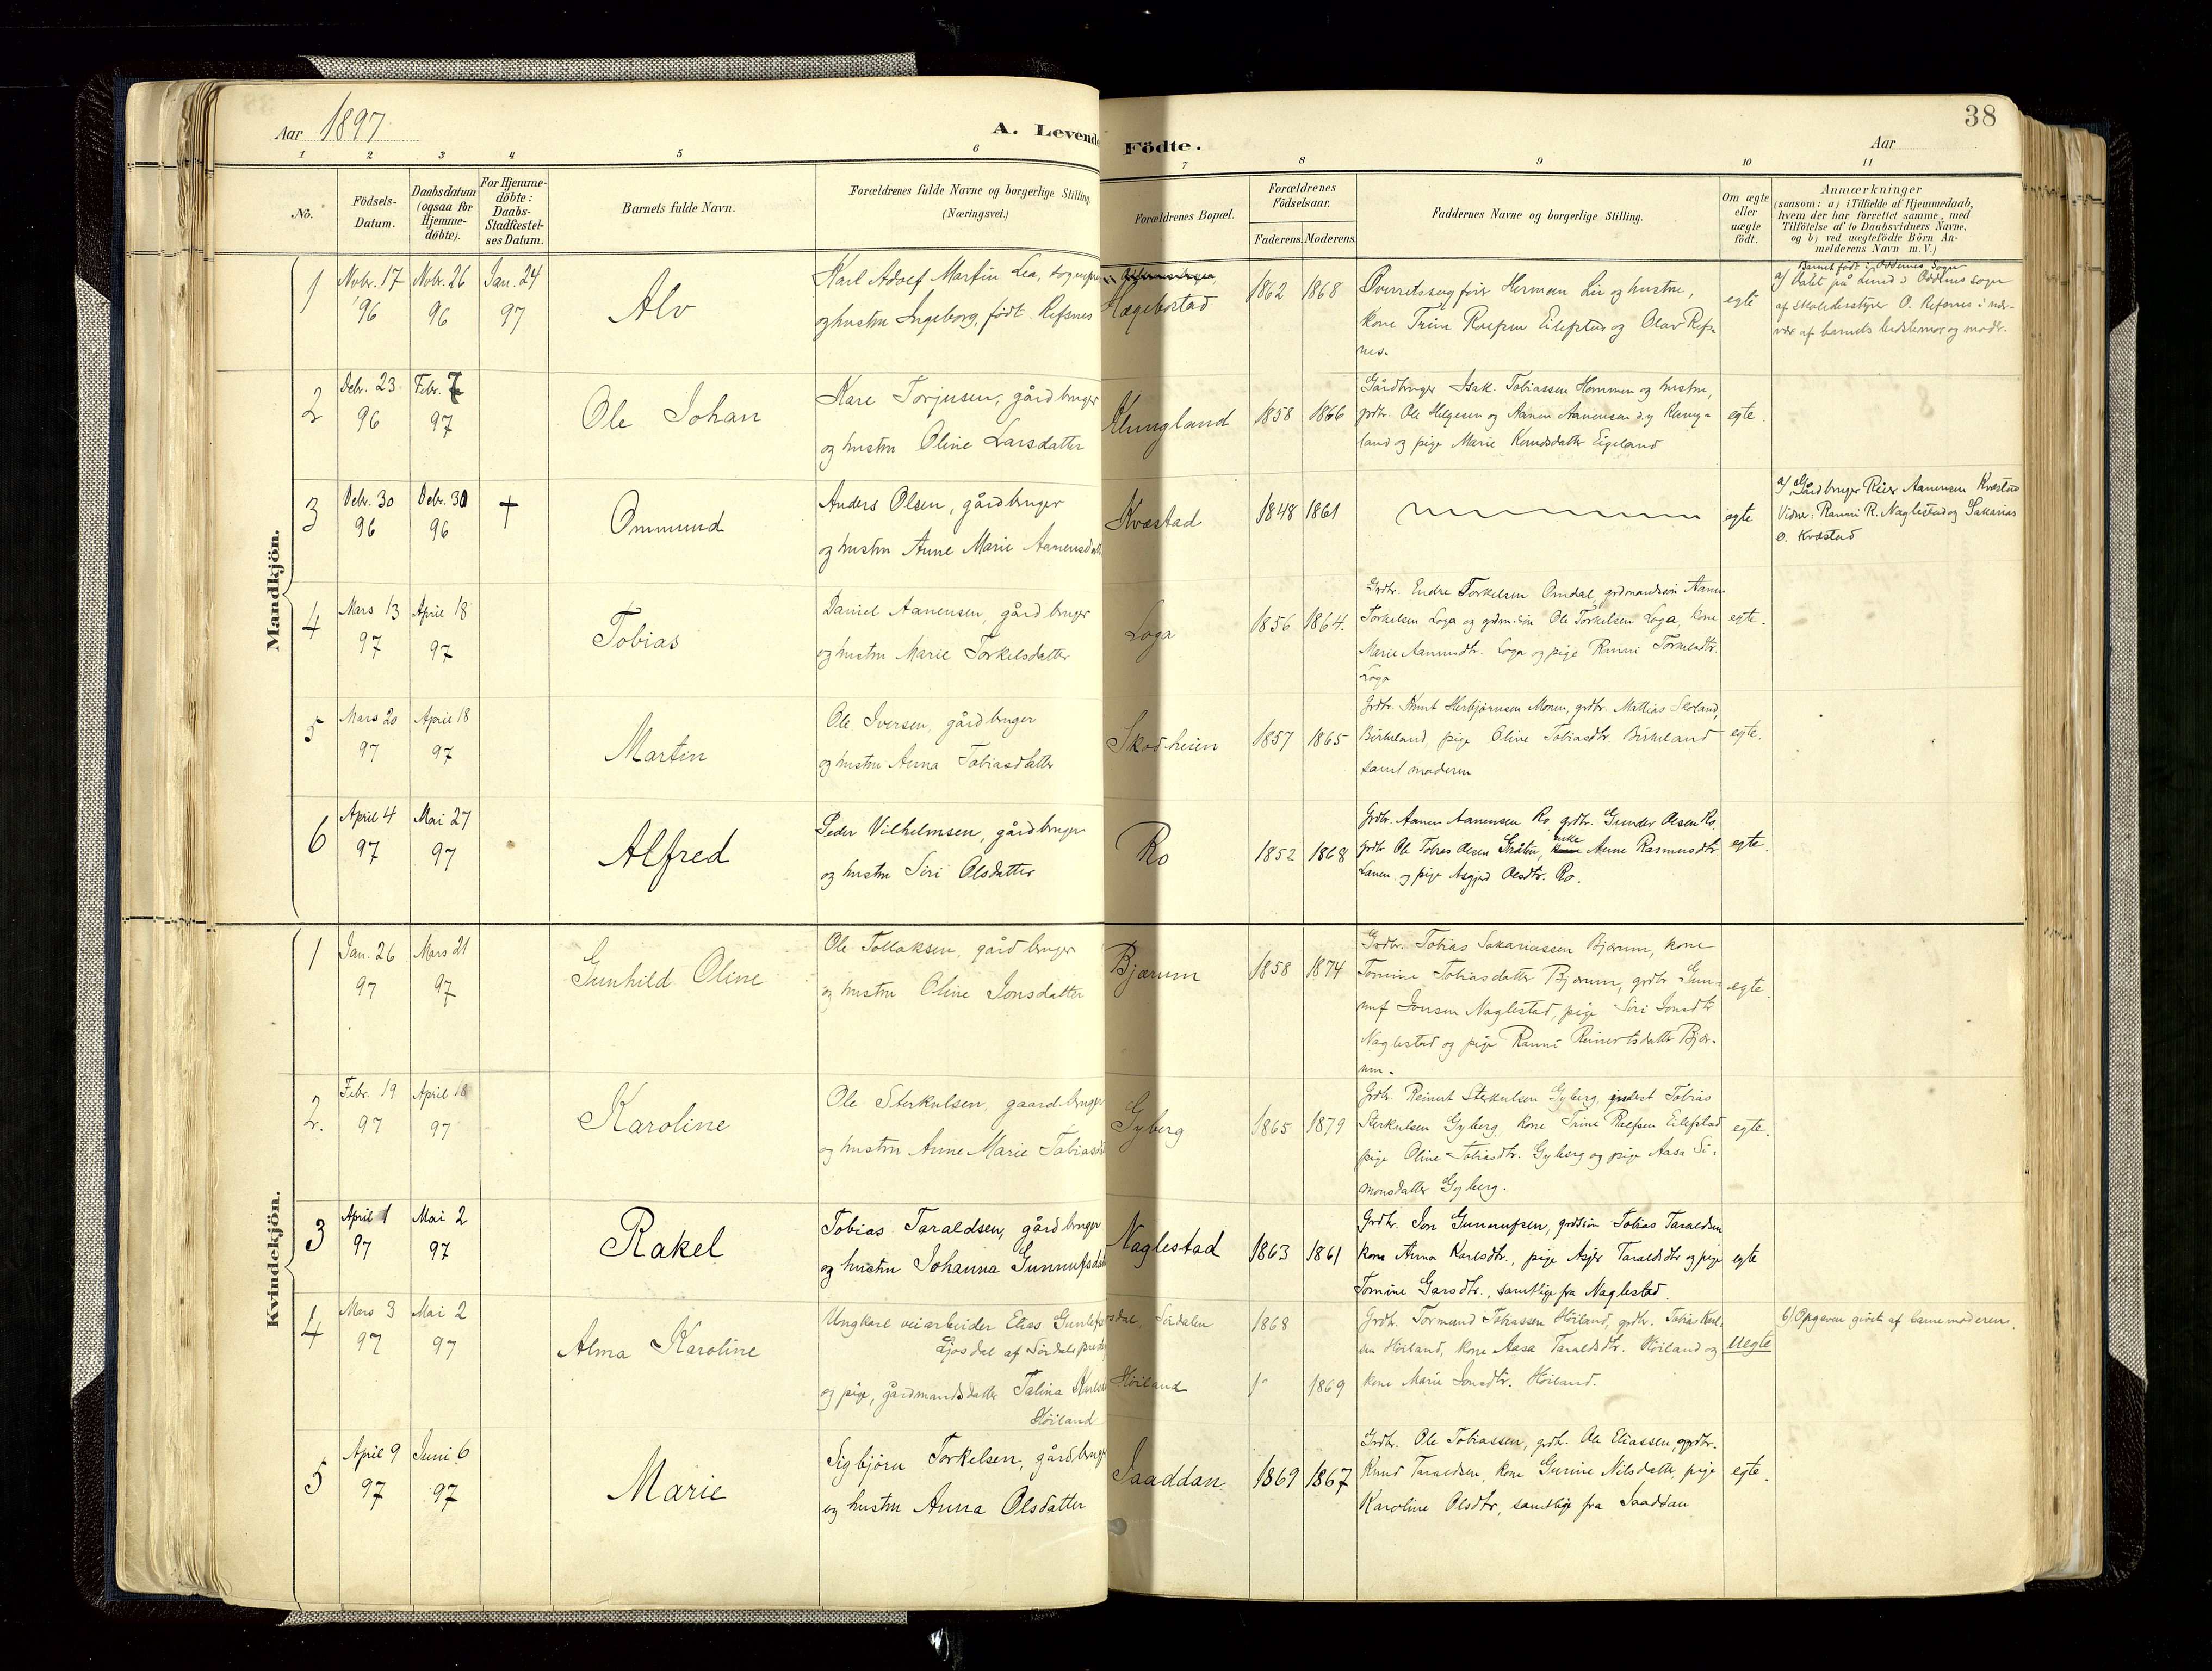 38
Aar 1897
A. Levende Födte.
Aar
1 2 3 4 5 6 7 8 9 10 11
No.
Födsels-Datum.
Daabsdatum (ogsaa for Hjemme-döbte).
For Hjemme-döbte: Daabs-Stadfæstel-ses Datum.
Barnets fulde Navn.
Forældrenes fulde Navne og borgerlige Stilling (Næringsvei.)
Forældrenes Bopæl.
Forældrenes Födselsaar.
Faderens. Moderens.
Faddernes Navne og borgerlige Stilling.
Om ægte eller uægte födt.
Anmærkninger
(saasom: a) i Tilfælde af Hjemmedaab,
hvem der har forrettet samme, med
Tilföielse af to Daabsvidners Navne.
og b) ved uægtefödte Börn An-
melderens Navn m. V.)
Mandkjön.
1 Novbr. 17 96 Novbr. 26 96 Jan. 24 97
Alv
Karl Adolf Martin Lea, sognepr
og hustru Ingeborg, født Refsnes
Hægebostad
1862 1868
Overretssagfører Herman Lie og hustru,
kone Trine Roefsen Eilefstad og Olav Refs-
nes.
egte
Barnet født i Oddernes Sogn
a/ Døbt på Lund i Oddernes sogn
af skolebestyrer O. Refsnes i nær-
vær af barnets bedstemor og moder.
2 Debr. 23 96 Febr. 7 97
Ole Johan
Kare Torjusen, gårdbruger
og hustru Oline Larsdatter
Klungland
1858 1866
Gårdbruger Isak Tobiassen Hommen og hustru,
grdbr. Ole Helgesen og Aanen Aanensen d.y. Klung-
land og pige Marie Knudsdatter Eigeland
egte.
3 Debr. 30 96 Debr. 30 96 †
Ommund
Anders Olsen, gårdbruger
og hustru Anne Marie Aanensdatt
Kvæstad
1848 1861
egte
a/ Gårdbruger Reier Aanensen Kvæstad
Vidner: Ranni R. Naglestad og Sakarias
O. Kvæstad
4 Mars 13 97 April 18 97
Tobias
Daniel Aanensen, gårdbruger
og hustru Marie Torkelsdatter
Loga
1856 1864
Grdbr. Endre Torkelsen Omdal, grdmandssøn Aanen
Torkelsen Loga og grdm.søn Ole Torkelsen Loga, kone
Marie Aanensdtr. Loga og pige Ranni Tormodsdtr.
Loga
egte.
5 Mars 20 97 April 18 97
Martin
Ole Iversen, gårdbruger
og hustru Anna Tobiasdatter
Skodheien
1857 1865
Grdbr. Knut Herbjørnsen Moren, grdbr. Mathias Skoland,
Birkeland, pige Oline Tobiasdtr. Birkeland
samt moderen
egte.
6 April 4 97 Mai 27 97
Alfred
Peder Vilhelmsen, gårdbruger
og hustru Siri Olsdatter
Ro
1852 1868
Grdbr. Aanen Aanensen Ro, grdbr. Gunder Olsen Ro,
grdbr. Ole Tobias Olsen Bråten, enke Anne Rasmusdtr
Lauen og pige Asgjerd Olsdtr. Ro.
egte.
Kvindekjön.
1 Jan. 26 97 Mars 21 97
Gunhild Oline
Ole Tollaksen, gårdbruger
og hustru Oline Jonsdatter
Bjærum
1858 1874
Grdbr. Tobias Sakariassen Bjærum, kone
Tomine Tobiasdatter Bjærum, grdbr Gun-
nuf Jonsen Naglestad, pige Siri Jonsdtr
Naglestad og pige Ranni Reinertsdatter Bjær-
um.
egte.
2. Febr. 19 97 April 18 97
Karoline
Ole Sterkulsen, gaardbruger
og hustru Anne Marie Tobiasd
Gyberg
1865 1879
Grdbr. Reinert Sterkulsen Gyberg, inderst Tobias
Sterkulsen Gyberg, kone Trine Roefsen Eilefstad
pige Oline Tobiasdtr. Gyberg og pige Aasa Si-
monsdatter Gyberg.
egte.
3 April 1 97 Mai 2 97
Rakel
Tobias Taraldsen, gårdbruger
og hustru Johanna Gunnufsdatt
Naglestad
1863 1861
Grdbr. Jon Gunnufsen, grdsøn Tobias Taraldsen
kone Anna Karlsdtr., pige Asjer Taraldsdtr og pige
Tomine Larsdtr., samtlige fra Naglestad.
egte
4 Mars 3 97 Mai 2 97
Alma Karoline
Ungkarl veiarbeider Elias Gunlefs
Gjosdal af Sirdals præstegj
og pige, gårdmandsdatter Talina Karlsd
Höiland
sdal, Sirdalen
Höiland
1868
1869
Grdbr. Tormund Tobiassen Höiland, grdbr. Tobias Karl-
sen Höiland, kone Aasa Taraldsdtr. Höiland og
kone Marie Jonsdtr. Höiland.
Uegte
b/ Opgaven givet af barnemoderen.
5 April 9 97 Juni 6 97
Marie
Sigbjørn Torkelsen, gårdbruger
og hustru Anna Olsdatter
Saaddan
1869 1867
Grdbr. Ole Tobiassen, grdbr. Ole Eliassen, grdbr.
Knud Taraldsen, kone Gurine Nilsdatter, pige
Karoline Olsdtr, samtlige fra Saaddan
egte.